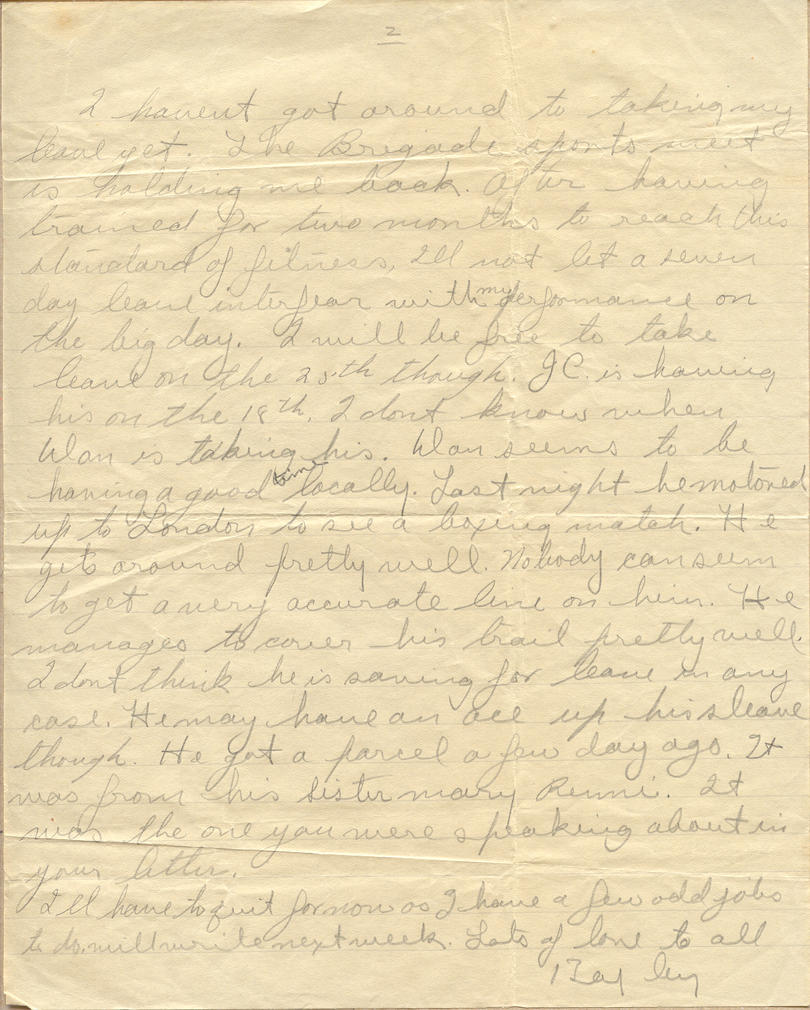 2
I havent got around to taking my
leave yet. The Brigade sports meet
is holding me back. After having
trained for two months to reach this
standard of fitness, I'll not let a seven
day leave interfear with my performance on
the big day. I will be free to take
leave on the 25th though. J.C. is having
his on the 18th. I dont know when
Wlan is taking his. Wlan seems to be
having a good time locally. Last night he motored
up to London to see a boxing match. He
gets around pretty well. Nobody can seem
to get a very accurate line on him. He
manages to cover his trail pretty well.
I dont think he is saving for leave in any
case. He may have an ace up his sleave
though. He got a parcel a few day ago. It
was from his sister Mary . It
was the one you were speaking about in
your letter.
I'll have to quit for now as I have a few odd jobs
to do, will write next week. Lots of love to all